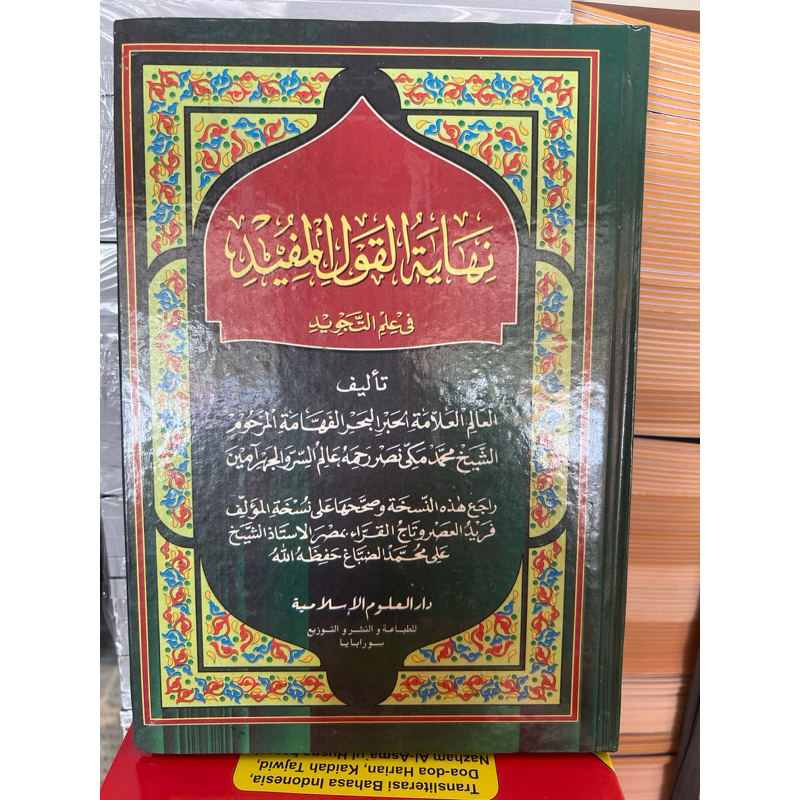 نهاية القول المفيد
في علم التجويد
تأليف
العالم العلامة الحبر البحر الفهامة المرحوم
الشيخ محمد مكي نصر رحمه عالم السر والجهر آمين
راجع هذه النسخة وصححها على نسخة المؤلف
فريد العصر وتاج القراء بمصر الاستاذ الشيخ
على محمد الضباغ حفظه الله
دار العلوم الإسلامية
للطباعة و النشر و التوزيع
سورابايا
Transliterasi Bahasa Indonesia,
Doa-doa Harian, Kaidah Tajwid,
Nazham Al-Asma`ul Husna